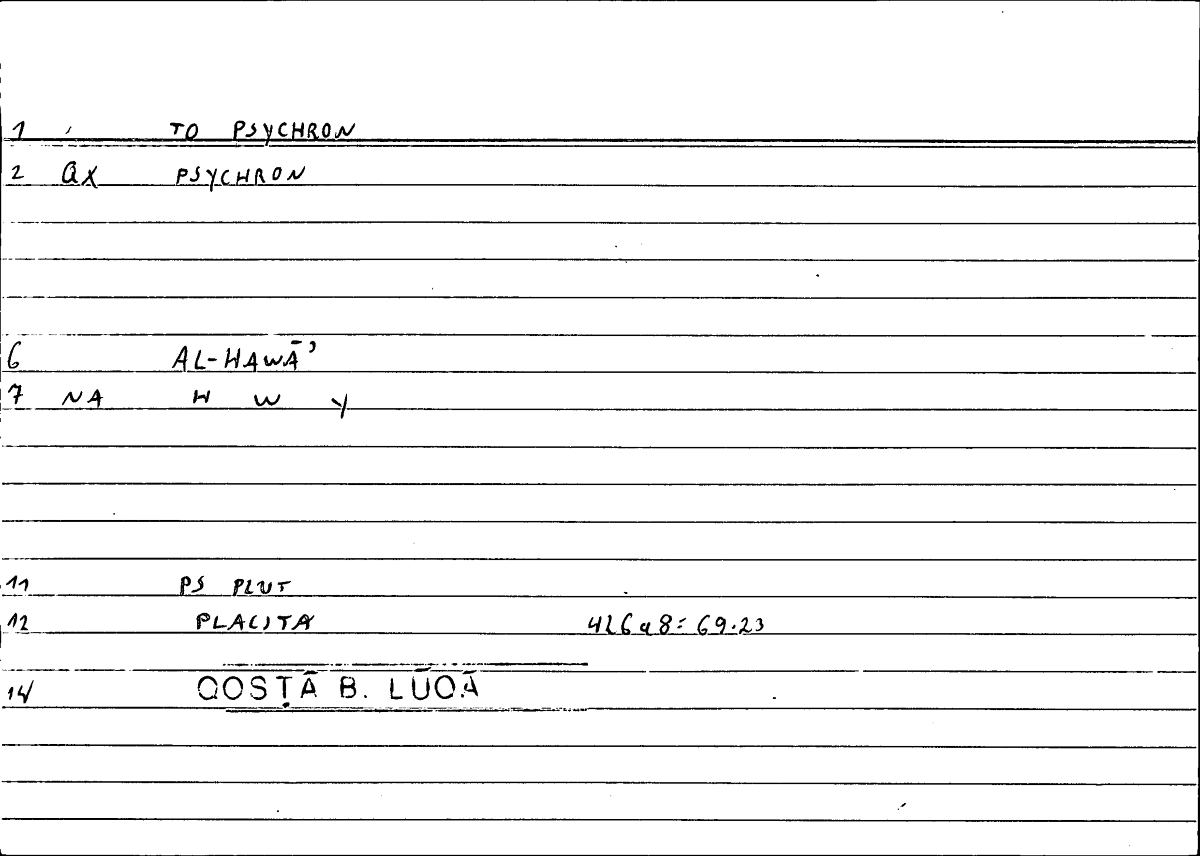 1 TO PSYCHRON
2 QX PSYCHRON
6 AL-HAWĀʾ
7 NA H W Y
11 PS PLUT
12 PLACITA 426a8 = 69.23
14 QOSṬĀ B. LŪQĀ